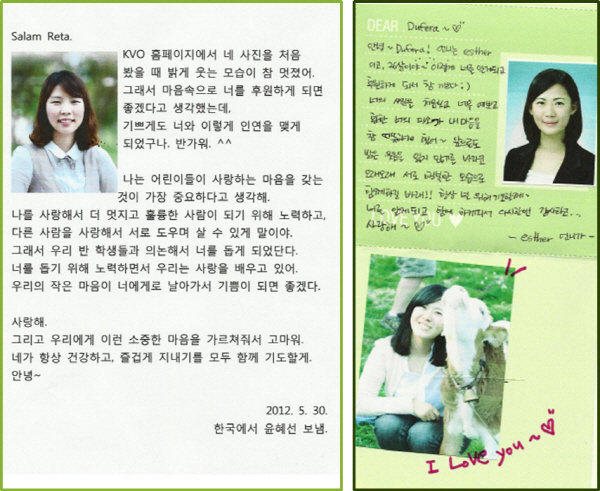 Salam Reta.
KVO 홈페이지에서 네 사진을 처음
봤을 때 밝게 웃는 모습이 참 멋졌어.
그래서 마음속으로 너를 후원하게 되면
좋겠다고 생각했는데,
기쁘게도 너와 이렇게 인연을 맺게
되었구나. 반가워. ^^
나는 어린이들이 사랑하는 마음을 갖는
것이 가장 중요하다고 생각해.
나를 사랑해서 더 멋지고 훌륭한 사람이 되기 위해 노력하고,
다른 사람을 사랑해서 서로 도우며 살 수 있게 말이야.
그래서 우리 반 학생들과 의논해서 너를 돕게 되었단다.
너를 돕기 위해 노력하면서 우리는 사랑을 배우고 있어.
우리의 작은 마음이 너에게로 날아가서 기쁨이 되면 좋겠다.
사랑해.
그리고 우리에게 이런 소중한 마음을 가르쳐줘서 고마워.
네가 항상 건강하고, 즐겁게 지내기를 모두 함께 기도할게.
안녕~
2012. 5. 30.
한국에서 윤혜선 보냄.
DEAR. Dufera ~ ♡
안녕~ Dufera! 언니는 esther
이고, 26살이야~ 이렇게 너를 알게되고
후원하게 되서 참 기쁘다 :)
너의 사진을 처음보고 너무 예쁘고
환한 너의 미소가 내 마음을
참 따뜻하게 했어~ 앞으로도
밝은 웃음을 잃지 않기를 바라고
사랑해~ ♡
LOVE YOU ♥
- esther 언니가 -
I Love you ~ ♡